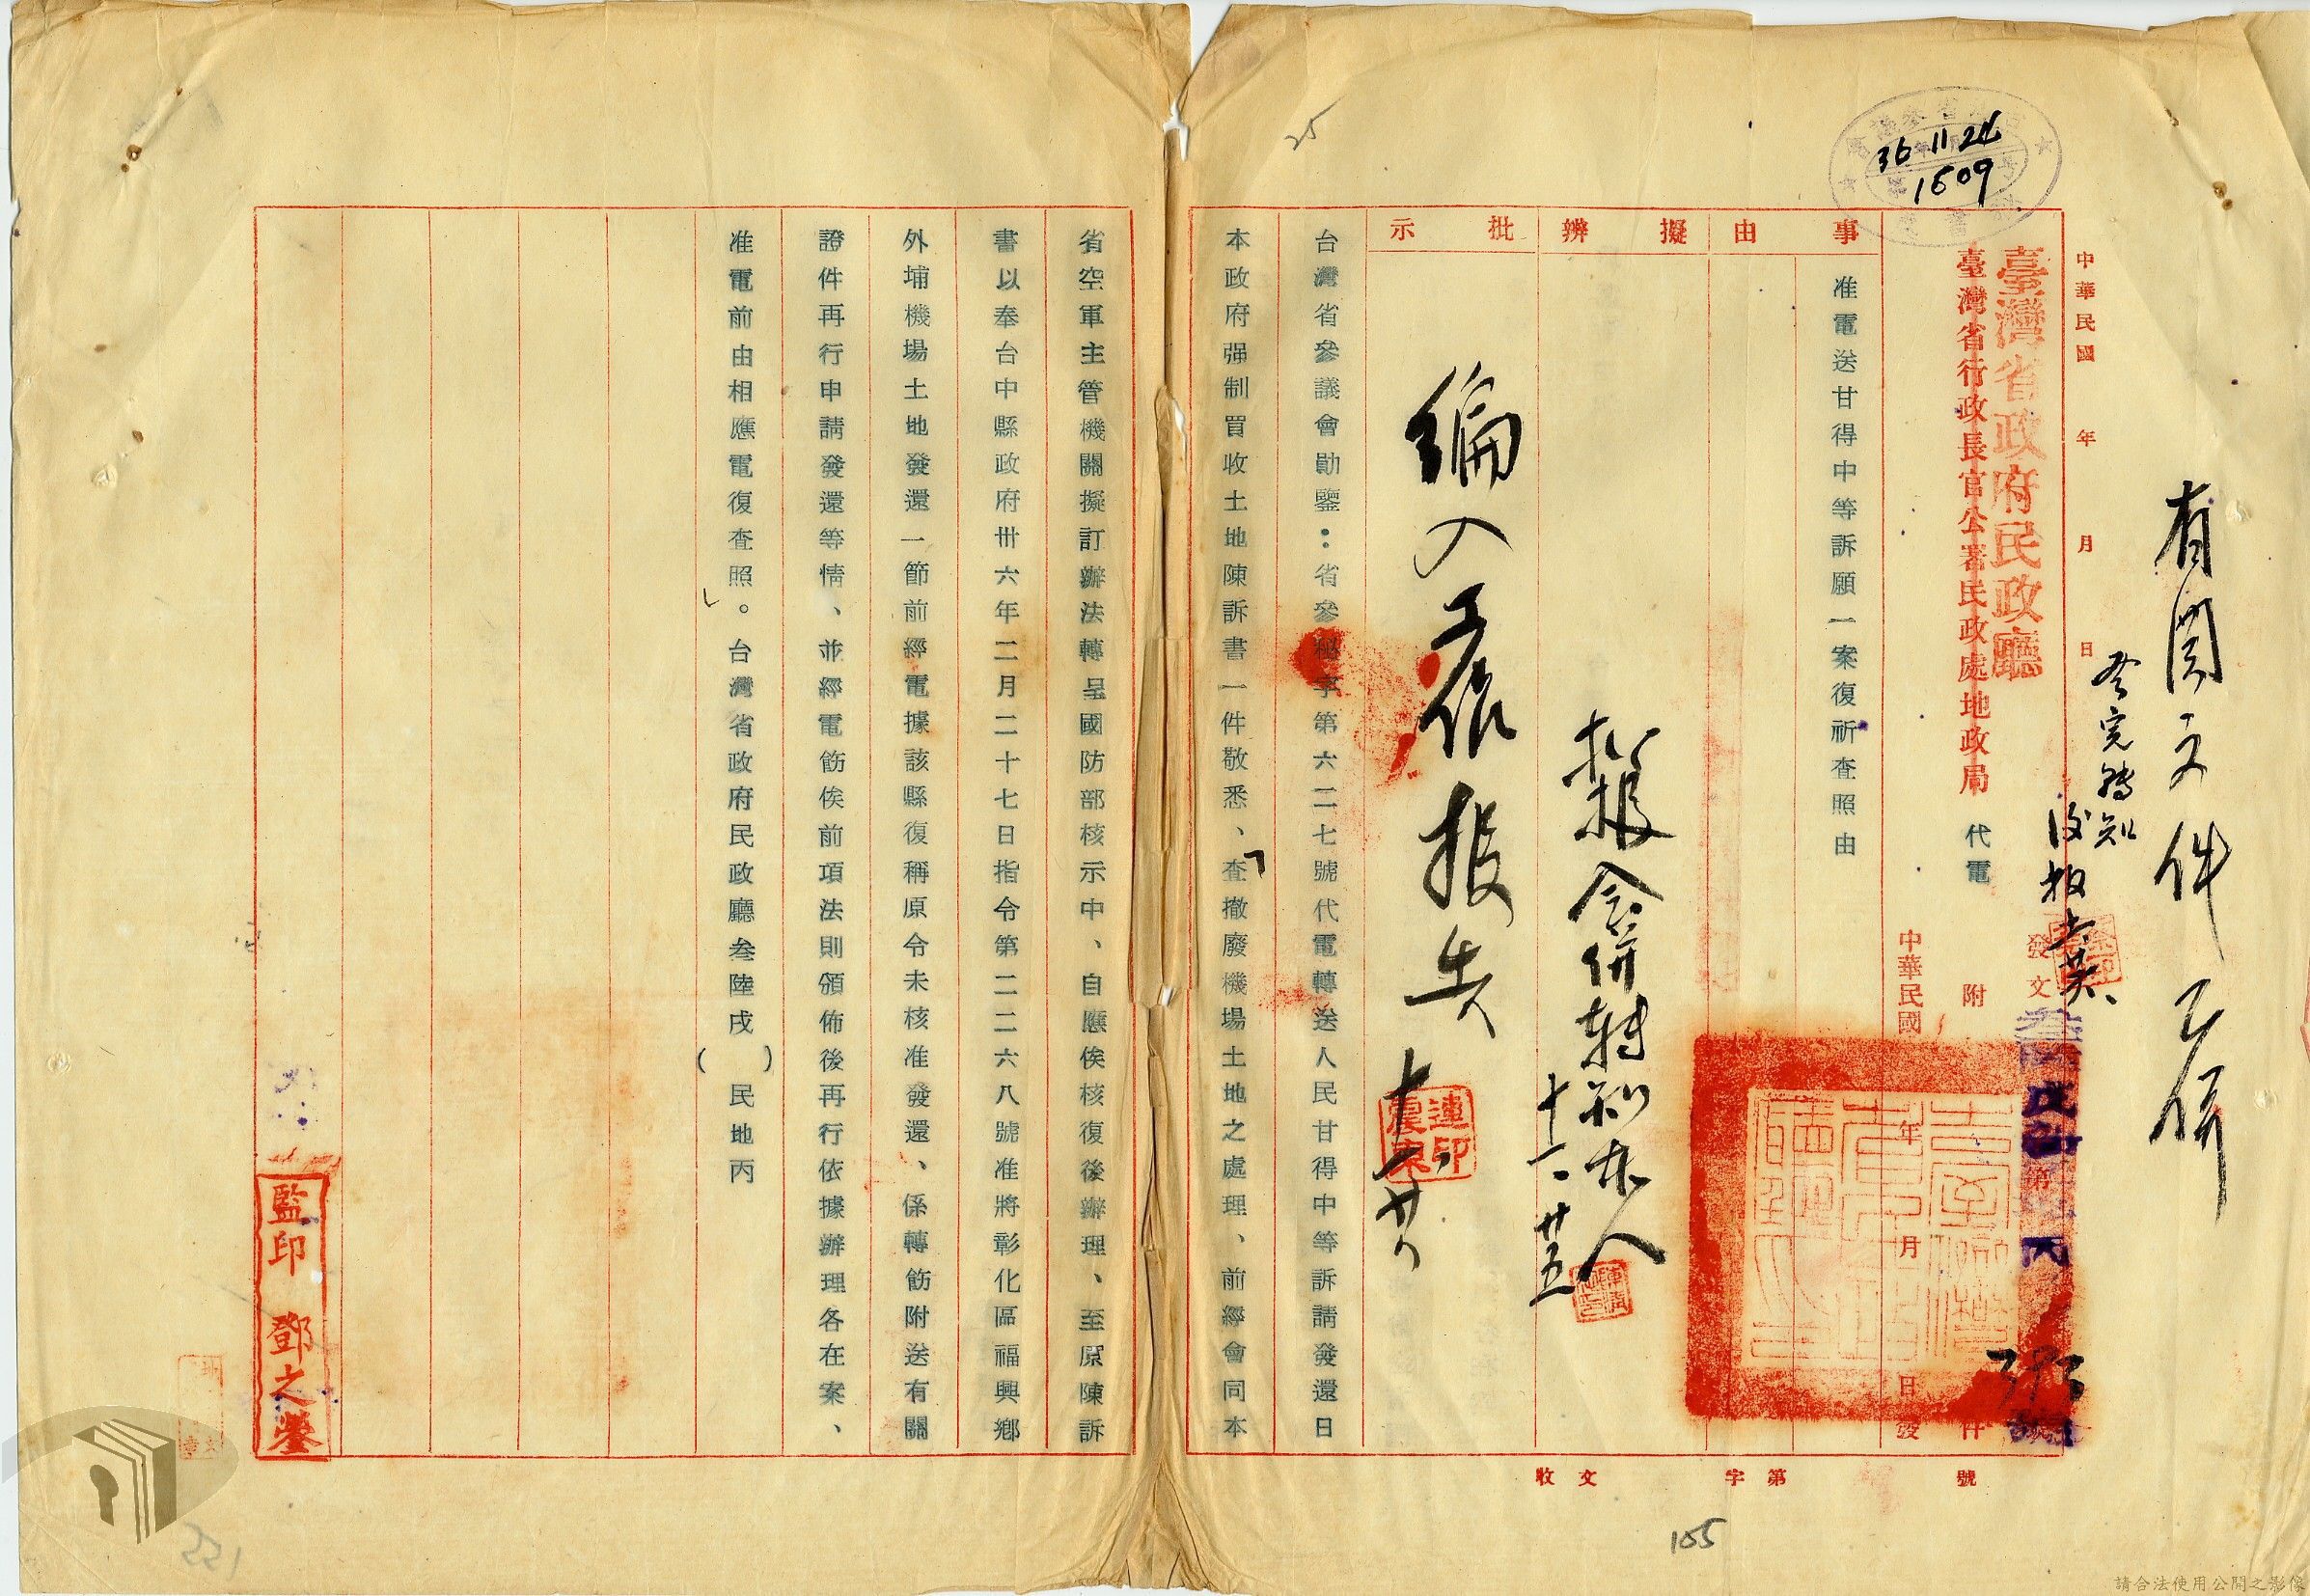 36.11.24
1609
25
有関文件已併
中華民國 年 月 日
臺灣省政府民政廳
臺灣省行政長官公署民政處地政局 代電
發文
附 件
中華民國 年 月 日發
事由
准電送甘得中等訴願一案復祈查照由
擬辦
擬報會併轉知本人
十一、廿五
批示
編入工作報告
台灣省參議會勛鑒：省參秘字第六二七號代電轉送人民甘得中等訴請發還日
本政府强制買收土地陳訴書一件敬悉、查撤廢機場土地之處理、前經會同本
省空軍主管機關擬訂辦法轉呈國防部核示中、自應俟核復後辦理、至原陳訴
書以奉台中縣政府卅六年二月二十七日指令第二二六八號准將彰化區福興鄉
外埔機場土地發還一節前經電據該縣復稱原令未核准發還、係轉飭附送有關
證件再行申請發還等情、並經電飭俟前項法則頒佈後再行依據辦理各在案、
准電前由相應電復查照。台灣省政府民政廳叁陸戌（ ）民地丙
監印 鄧之鎣
收文 字第 號
105
請合法使用公開之影像